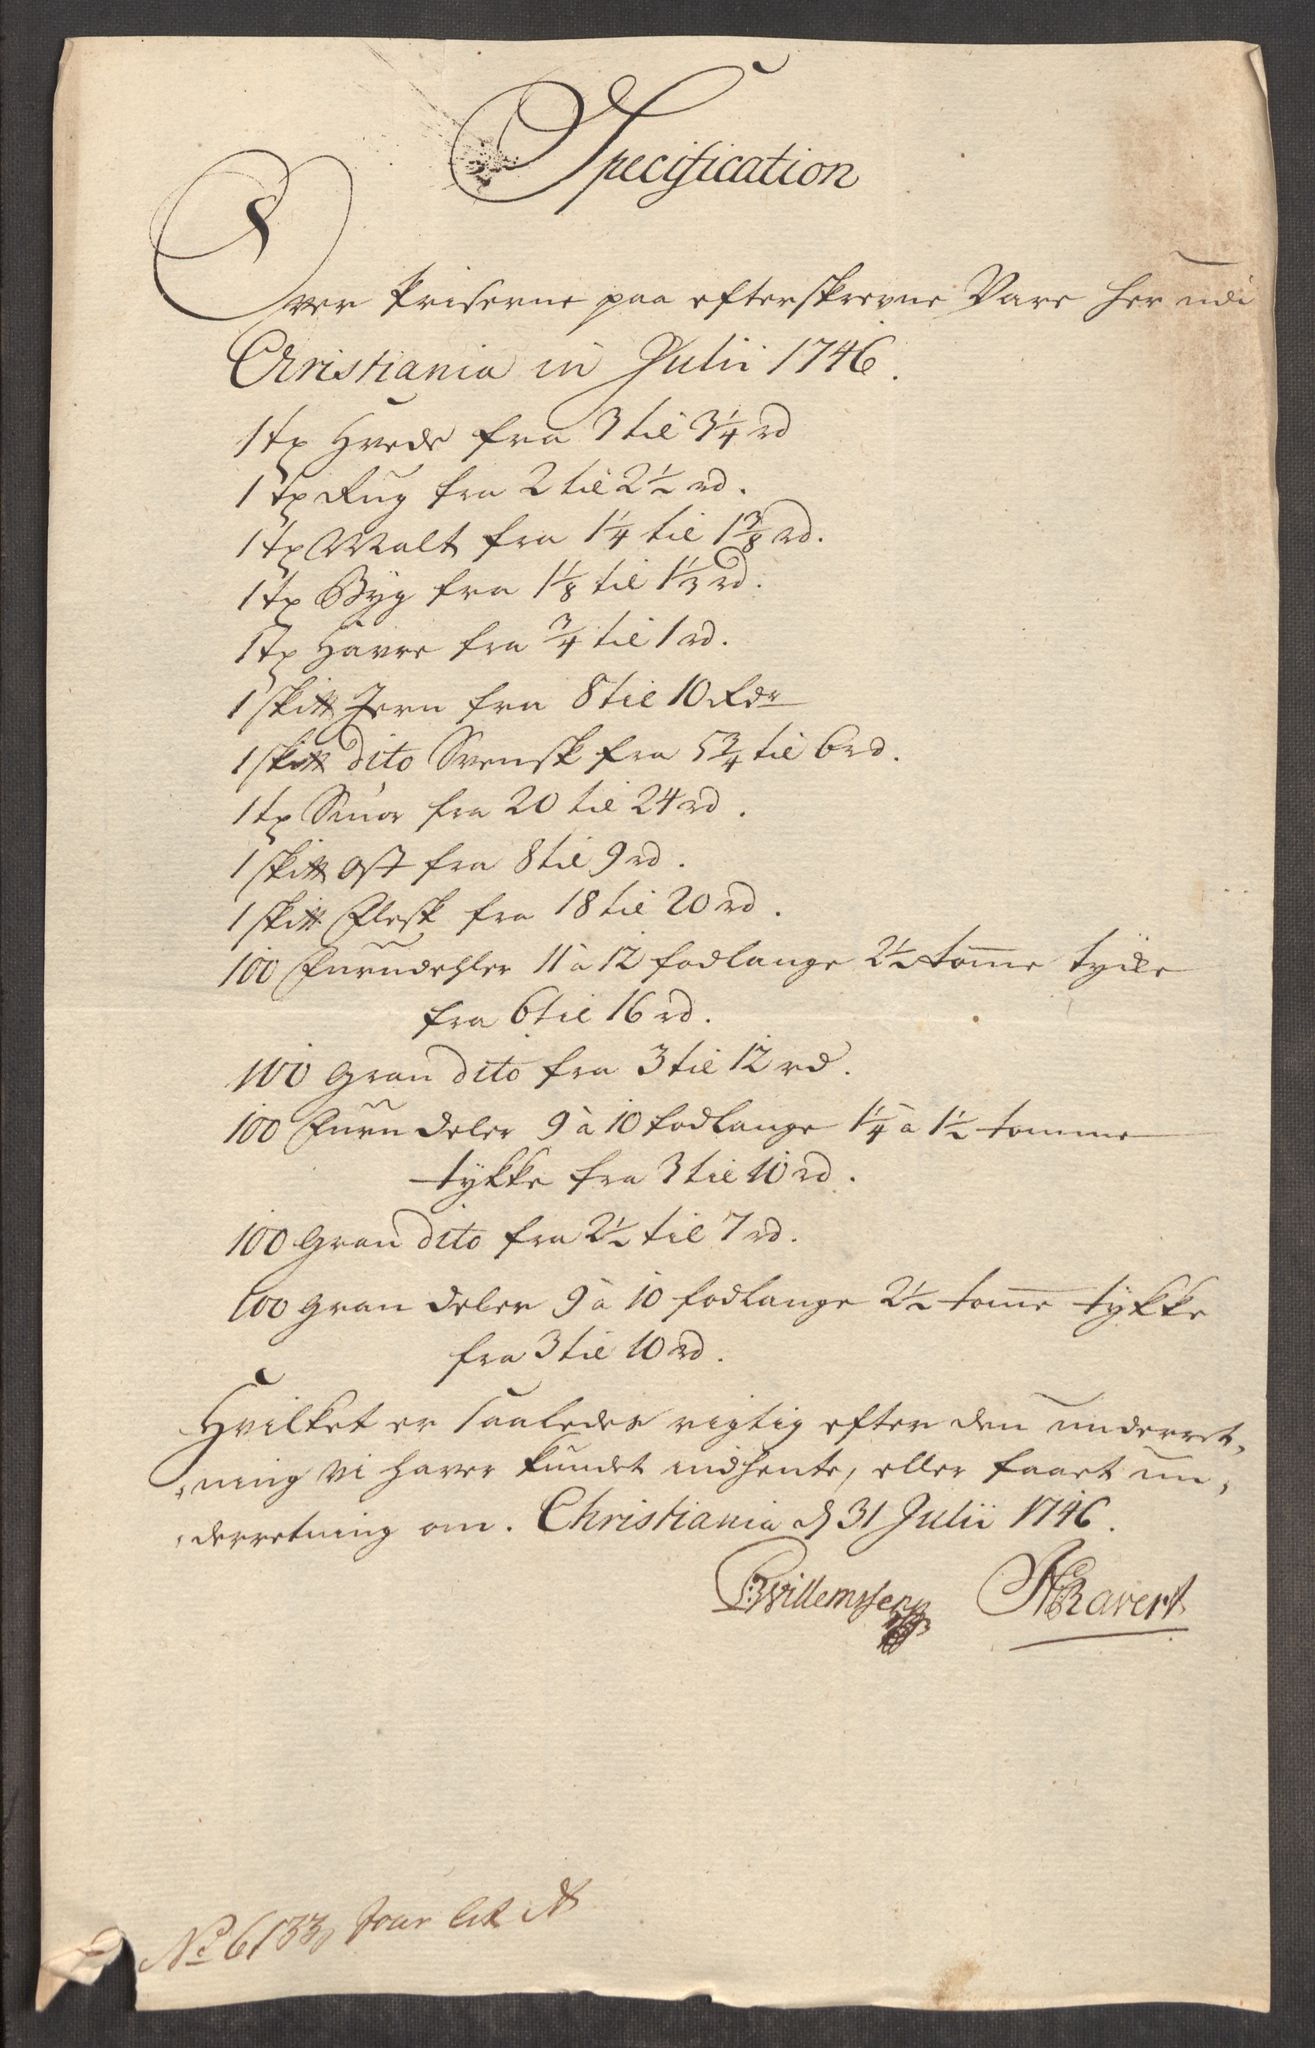 Specification
Over Priserne paa efterskrevne Vare her udi
Christiania in Julii 1746.
1 tø Hvede fra 3 til 3 1/4 rd
1 tø Rug fra 2 til 2 1/2 rd.
1 tø Malt fra 1 1/4 til 1 3/8 rd.
1 tø Byg fra 1 1/8 til 1 1/3 rd.
1 tø Havre fra 3/4 til 1 rd.
1 sk℔ Jern fra 8 til 10 Rdr
1 sk℔ dito Svensk fra 5 3/4 til 6 rd.
1 tø Smør fra 20 til 24 rd.
1 sk℔ Ost fra 8 til 9 rd.
1 sk℔ Flesk fra 18 til 20 rd.
100 Furudehler 11 à 12 fodlange 2 1/2 tom̅e tycke
fra 6 til 16 rd.
100 Gran dito fra 3 til 12 rd.
100 Furu deler 9 à 10 fodlange 1 1/4 à 1 1/2 tomme
tykke fra 3 til 10 rd.
100 Gran dito fra 2 1/2 til 7 rd.
100 Gran deler 9 à 10 fodlange 2 1/2 tom̅e tykke
fra 3 til 10 rd.
Hvilket er saaledes rigtig efter den underret,
,ning vi haver kundet indhente, eller faaet un,
,derretning om. Christiania d 31 Julii 1746.
Willemssen Ravert
No 6133 Jour Lit A